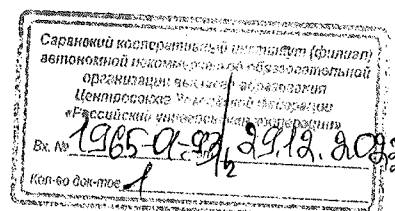 Саранский кооперативный институт (филиал)
автономной некоммерческой образовательной
организации высшего образования
Центросоюза Российской Федерации
«Российский университет кооперации»
Вх. № 1965-01-93/2 29.12.202
Кол-во док-тов 1